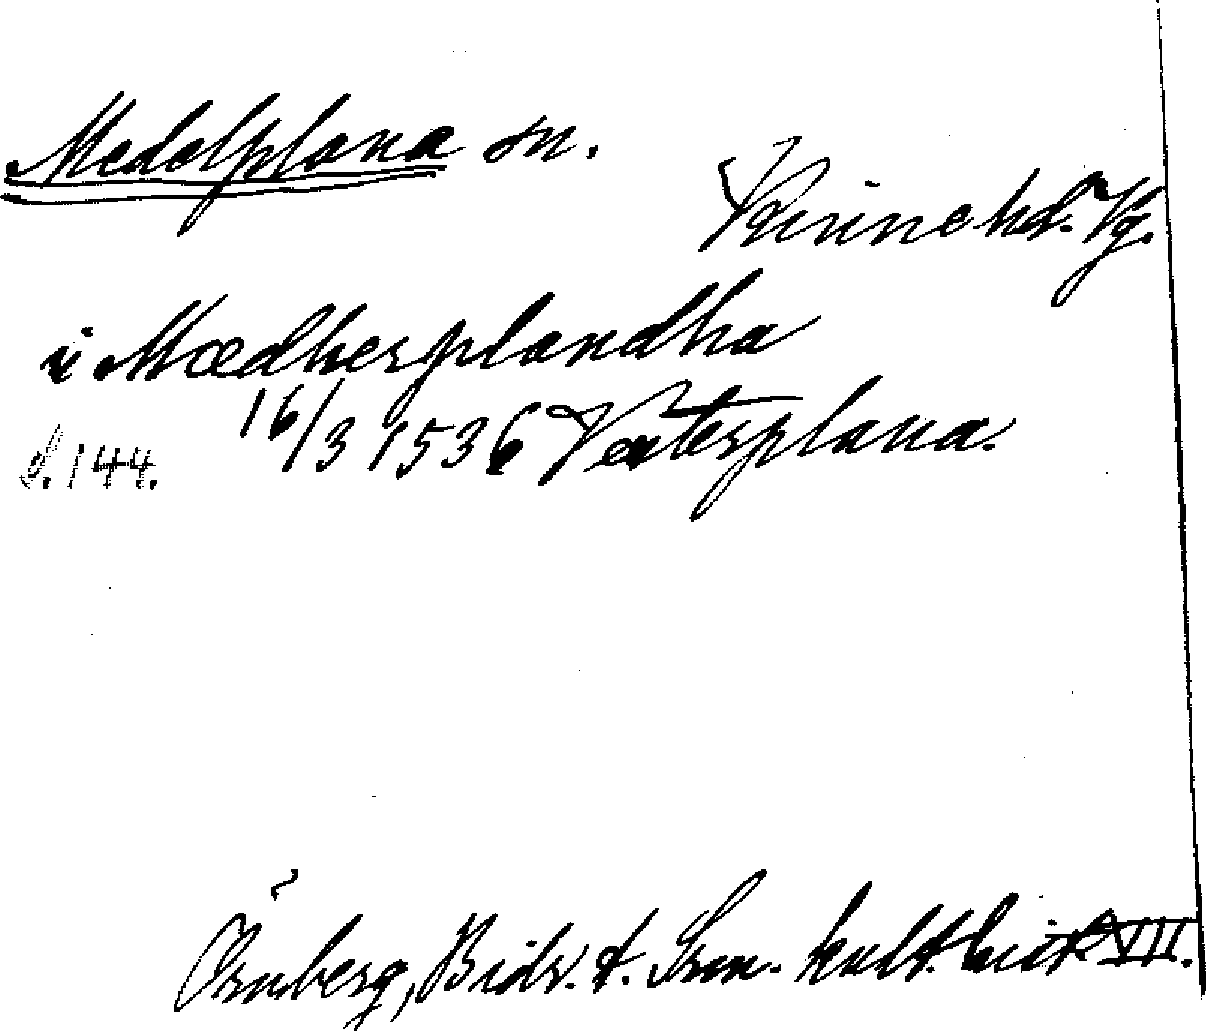 Medelplana sn.
Kinne hd. Vg.
i Mædherplandha
16/3 1536 Vesterplana.
s. 144.
Örnberg, Bidr. t. Sven. kult. hist. VII.